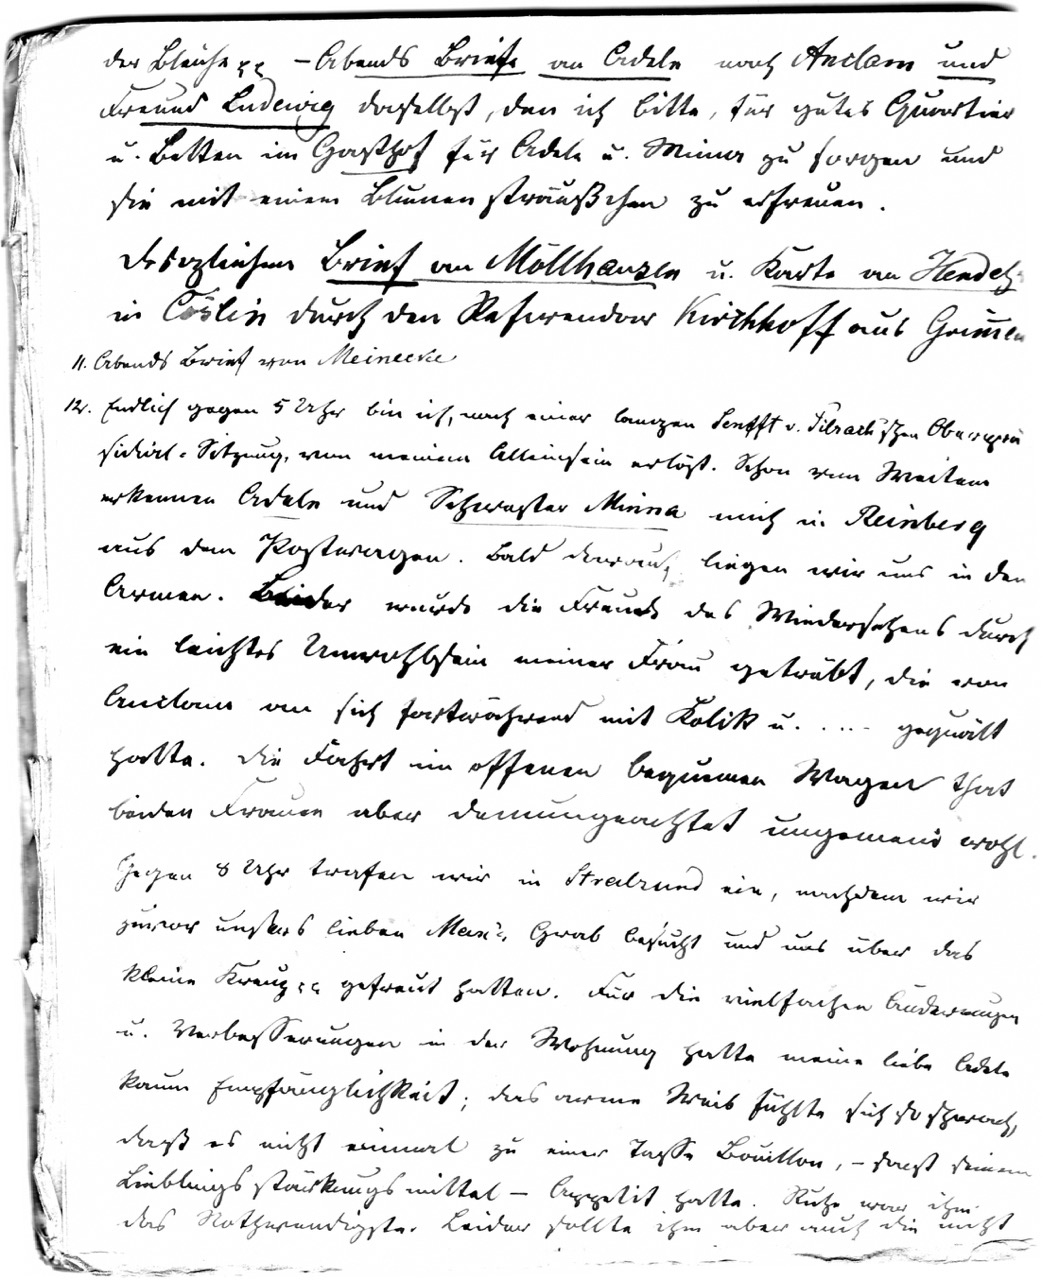 der Bleiche pp – Abends Briefe an Adele nach Anclam und
Freund Ludewig daselbst, den ich bitte, für gutes Quartier
u. Betten im Gasthof für Adele u. Minna zu sorgen und
sie mit einem Blumensträußchen zu erfreuen.
Desgleichen Brief an Möllhausen u. Karte an Hendeß
in Cöslin durch den Referendar Kirchhoff aus Grimmen
11. Abends Brief von Meinecke
12. Endlich gegen 5 Uhr bin ich, nach einer langen Senfft v. Pilsach'schen Oberprä
sidial-Sitzung, von meinem Alleinsein erlöst. Schon von Weitem
erkennen Adele und Schwester Minna mich in Reinberg
aus dem Postwagen. Bald darauf liegen wir uns in den
Armen. Leider wurde die Freude des Wiedersehens durch
ein leichtes Unwohlsein meiner Frau getrübt, die von
Anclam an sich fortwährend mit Kolik u. .... gequält
hatte. Die Fahrt im offenen bequemen Wagen that
beiden Frauen aber demungeachtet ungemein wohl.
Gegen 8 Uhr trafen wir in Stralsund ein, nachdem wir
zuvor unsers lieben Max's Grab besucht und uns über das
kleine Kreuz pp gefreut hatten. Für die vielfachen Änderungen
u. Verbesserungen in der Wohnung hatte meine liebe Adele
kaum Empfänglichkeit; das arme Weib fühlte sich so schwach,
daß es nicht einmal zu einer Tasse Bouillon, – sonst seinem
Lieblingsstärkungsmittel – Appetit hatte. Ruhe war ihm
das Nothwendigste. Leider sollte ihm aber auch die nicht